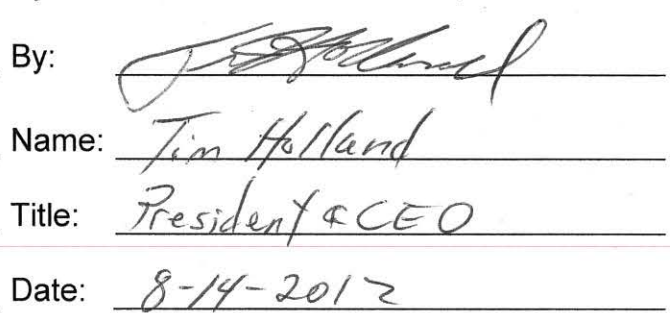 By: Tim Holland
Name: Tim Holland
Title: President & CEO
Date: 8-14-2012